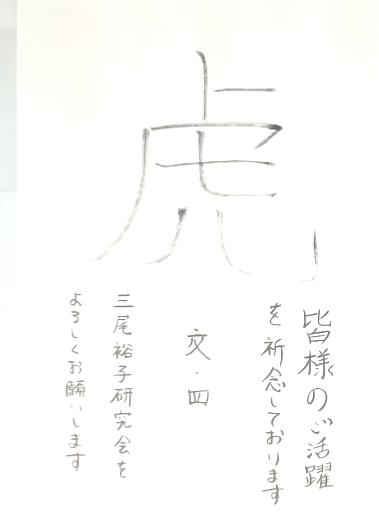 虎
皆様のご活躍
を祈念しております
文・四
三尾裕子研究会を
よろしくお願いします